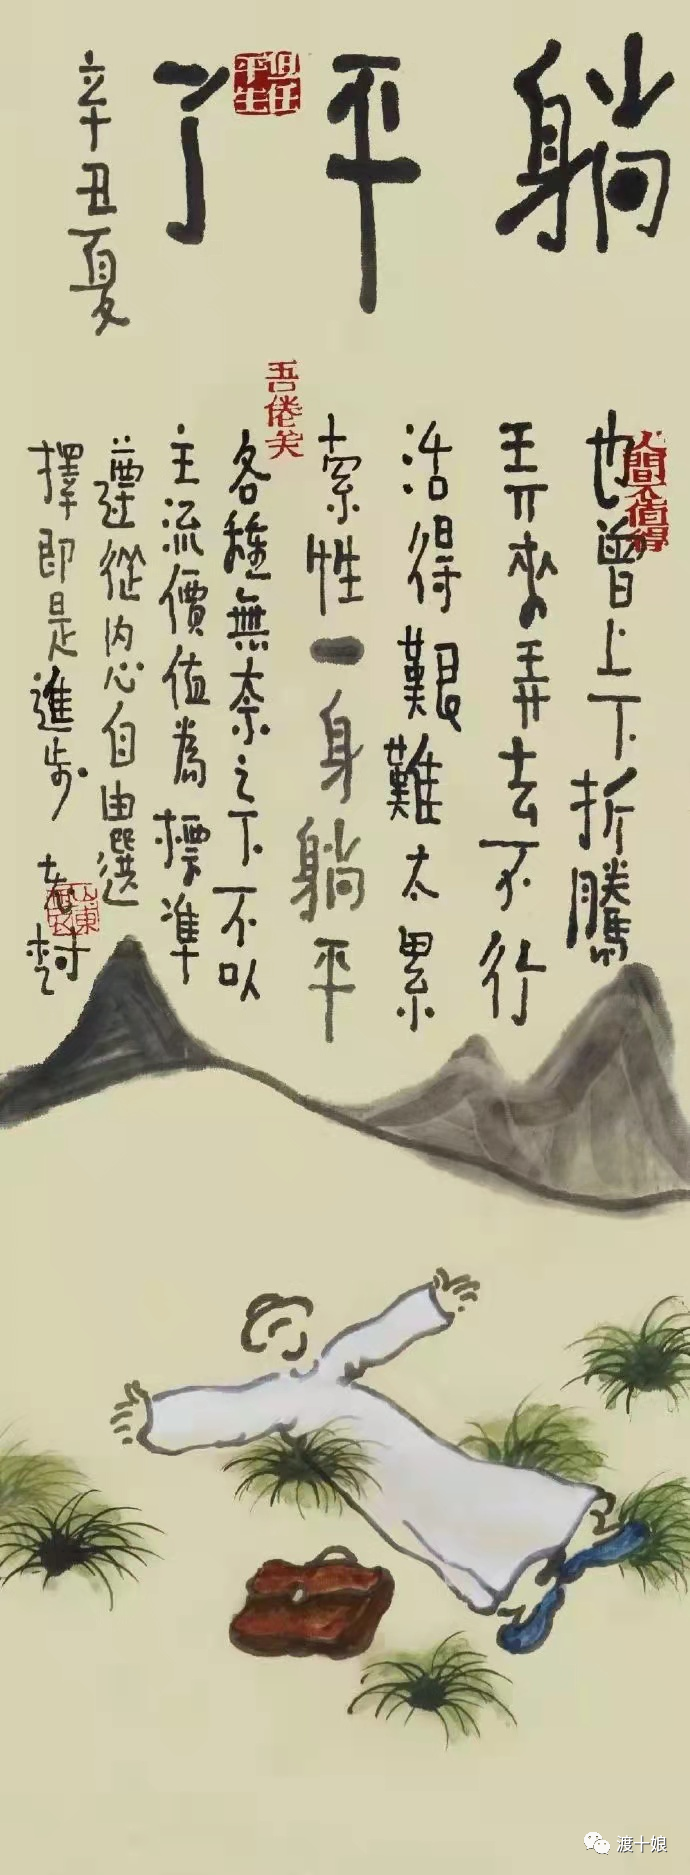 躺平了
辛丑夏
人間不值得
也曾上下折騰
弄來弄去不行
活得艱難太累
索性一身躺平
吾倦矣
各種無奈之下不以
主流價值為標準
遵從内心自由選
擇即是進步 老村
渡十娘